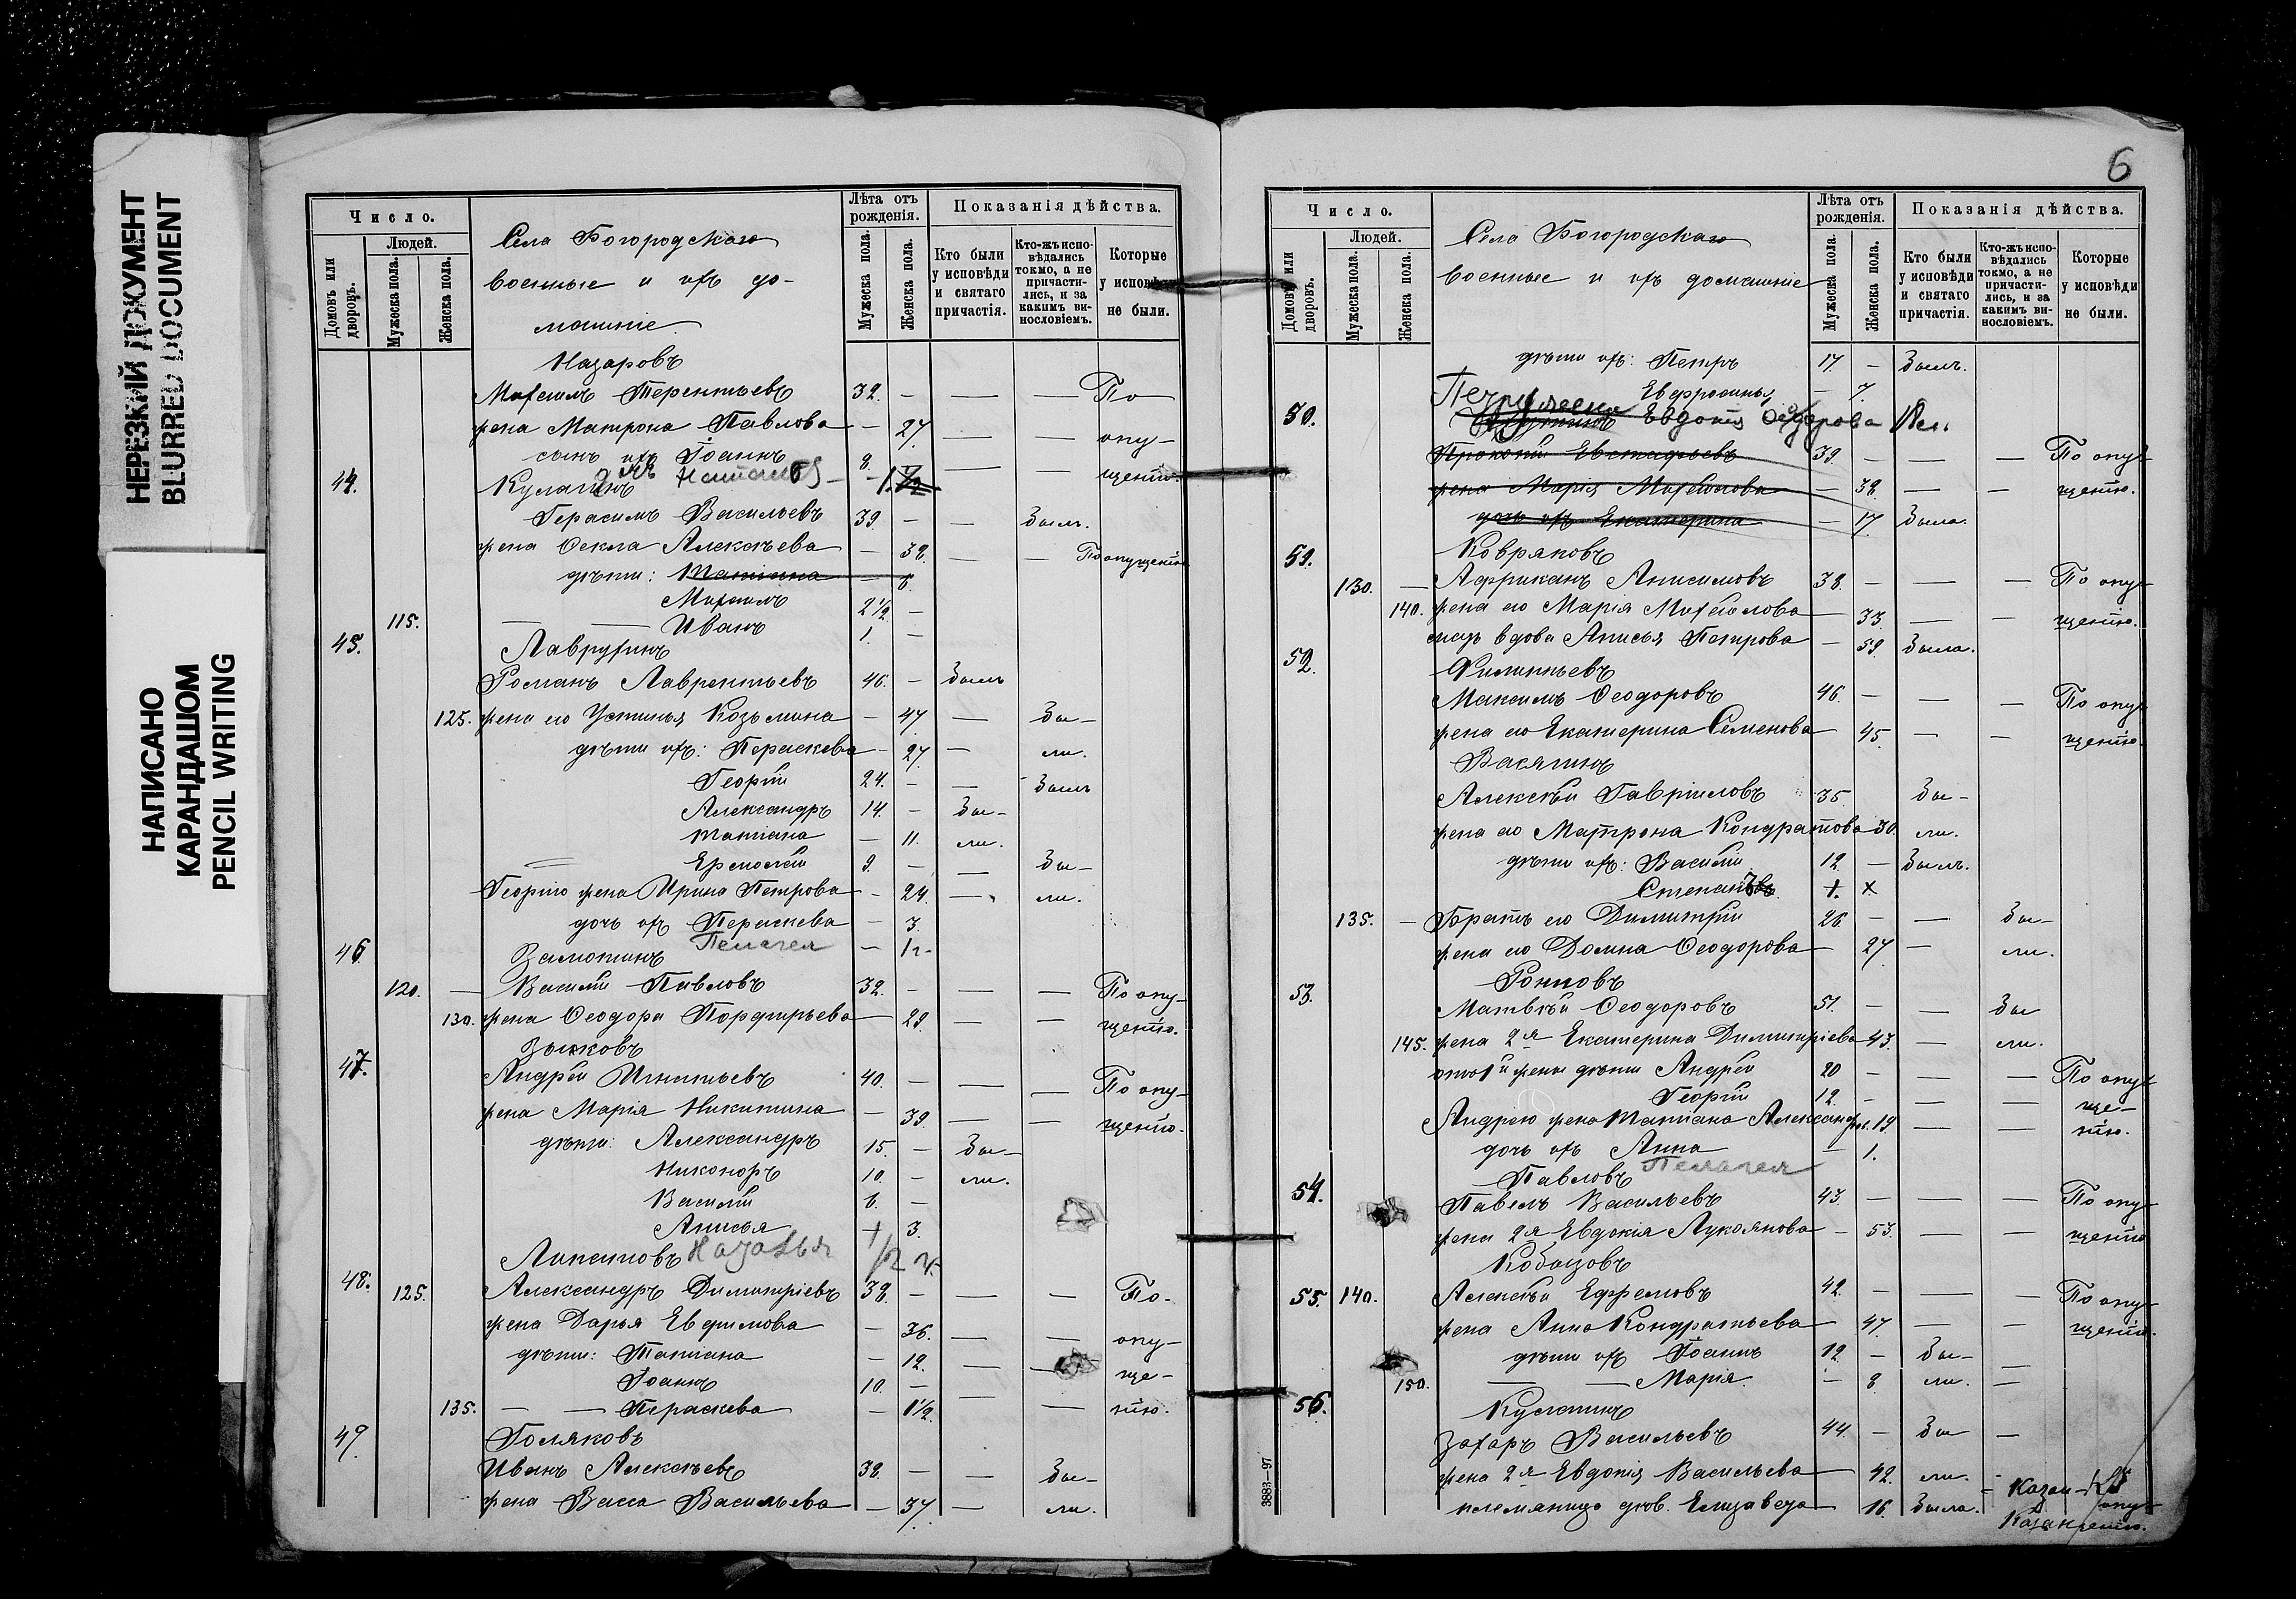 НЕРЕЗКИЙ ДОКУМЕНТ
BLURRED DOCUMENT
НАПИСАНО
КАРАНДАШОМ
PENCIL WRITING
Число.
Лѣта отъ рожденія.
Показанія дѣйства.
Людей.
Домовъ или дворовъ.
Мужеска пола.
Женска пола.
Села Богородскаго
военные и ихъ до-
машніе.
Мужеска пола.
Женска пола.
Кто были у исповѣди и святаго причастія.
Кто-жъ исповѣдались токмо, а не причастились, и за какимъ винословіемъ.
Которые у исповѣди не были.
Назаровъ
Михаилъ Терентьевъ 32. — — — По
жена Матрона Павлова — 27. — — опу-
сынъ ихъ Іоаннъ 8. — — — щенію.
44. Кулагинъ
Герасимъ Васильевъ 39 — — Былъ.
жена Ѳекла Алексѣева — 38. — — По опущенію
дѣти: Татіана — 6.
Михаилъ 2 1/2 —
115. — — Иванъ 1. —
45. Лаврухинъ
Романъ Лаврентьевъ 46. — Былъ
125. жена его Устинья Козьмина — 47 — Бы-
дѣти ихъ: Параскева — 27. — ли.
Георгій 24. — — Былъ
Александръ 14. — Бы-
Татіана — 11. ли.
Ермолай 9. — — Бы-
Георгію жена Ирина Петрова — 24. — ли.
дочь ихъ Параскева — 3.
Пелагея
46 Замотинъ
120. — Василій Павловъ 32. — — — По опу-
130. жена Ѳеодора Порфирьева — 29. — — щенію.
47. Зыковъ
Андрей Игнатьевъ 40. — — — По опу-
жена Марія Никитина — 39. — — щенію.
дѣти: Александръ 15. — Бы-
Никоноръ 10. — ли.
Василій 6. —
Анисья + 3.
Липатовъ
48. 125. Александръ Димитріевъ 38. — — — По-
жена Дарья Евфимова — 36. — — опу-
дѣти: Татіана — 12. — — ще-
Іоаннъ 10. — —
135. — — Параскева — 1 1/2. — нію.
49 Голяковъ
Иванъ Алексѣевъ 38. — — Бы-
жена Васса Васильева — 37. — ли.
6
Число.
Лѣта отъ рожденія.
Показанія дѣйства.
Людей.
Домовъ или дворовъ.
Мужеска пола.
Женска пола.
Села Богородскаго
военные и ихъ домашніе
Мужеска пола.
Женска пола.
Кто были у исповѣди и святаго причастія.
Кто-жъ исповѣдались токмо, а не причастились, и за какимъ винословіемъ.
Которые у исповѣди не были.
дѣти ихъ: Петръ 17. — Былъ.
Евфросинья — 7.
50. Евдотія
Прокопій Евстафьевъ 39. — — — По опу-
жена Марія Михайлова — 38. — — щенію.
дочь ихъ Екатерина — 17. Была.
51. Ковряковъ
130. — Африканъ Анисимовъ 38. — — — По опу-
140. жена его Марія Михайлова — 33. — — щенію.
мать вдова Анисья Петрова — 59. Была.
52. Филипьевъ
Максимъ Ѳеодоровъ 46. — — — По опу-
жена его Екатерина Семенова — 45. — — щенію.
Васягинъ
Алексѣй Гавріиловъ 35. Бы-
жена его Матрона Кондратова 30. ли.
дѣти ихъ: Василій 12. — Былъ.
135. — Братъ его Димитрій 26. — — Бы-
жена его Домна Ѳеодорова — 27. — ли.
53.
Матвѣй Ѳеодоровъ 51. — — Бы
145. жена 2я Екатерина Димитріева 43. — ли.
от 1й жены дѣти Андрей 20 — — — По опу-
Георгій 12. — — — ще-
Андрею жена Татіана Александр. 19 — — нію.
дочь ихъ Анна — 1.
Пелагея
54. Павловъ
Павелъ Васильевъ 43. — — — По опу-
жена 2я Евдокія Лукоянова — 53. — — щенію
Кобызовъ
55. 140. Алексѣй Ефремовъ 42. — — — По опу-
жена Анна Кондратьева — 47. — — щенію.
дѣти ихъ Іоаннъ 12. — Бы- —
150. — — Марія. — 8. ли. —
56. Кулагинъ
Захаръ Васильевъ 44. — Бы —
жена 2я Евдокія Васильева — 42. ли.
племянница дѣв. Елизавета — 16. Была.
3883—97